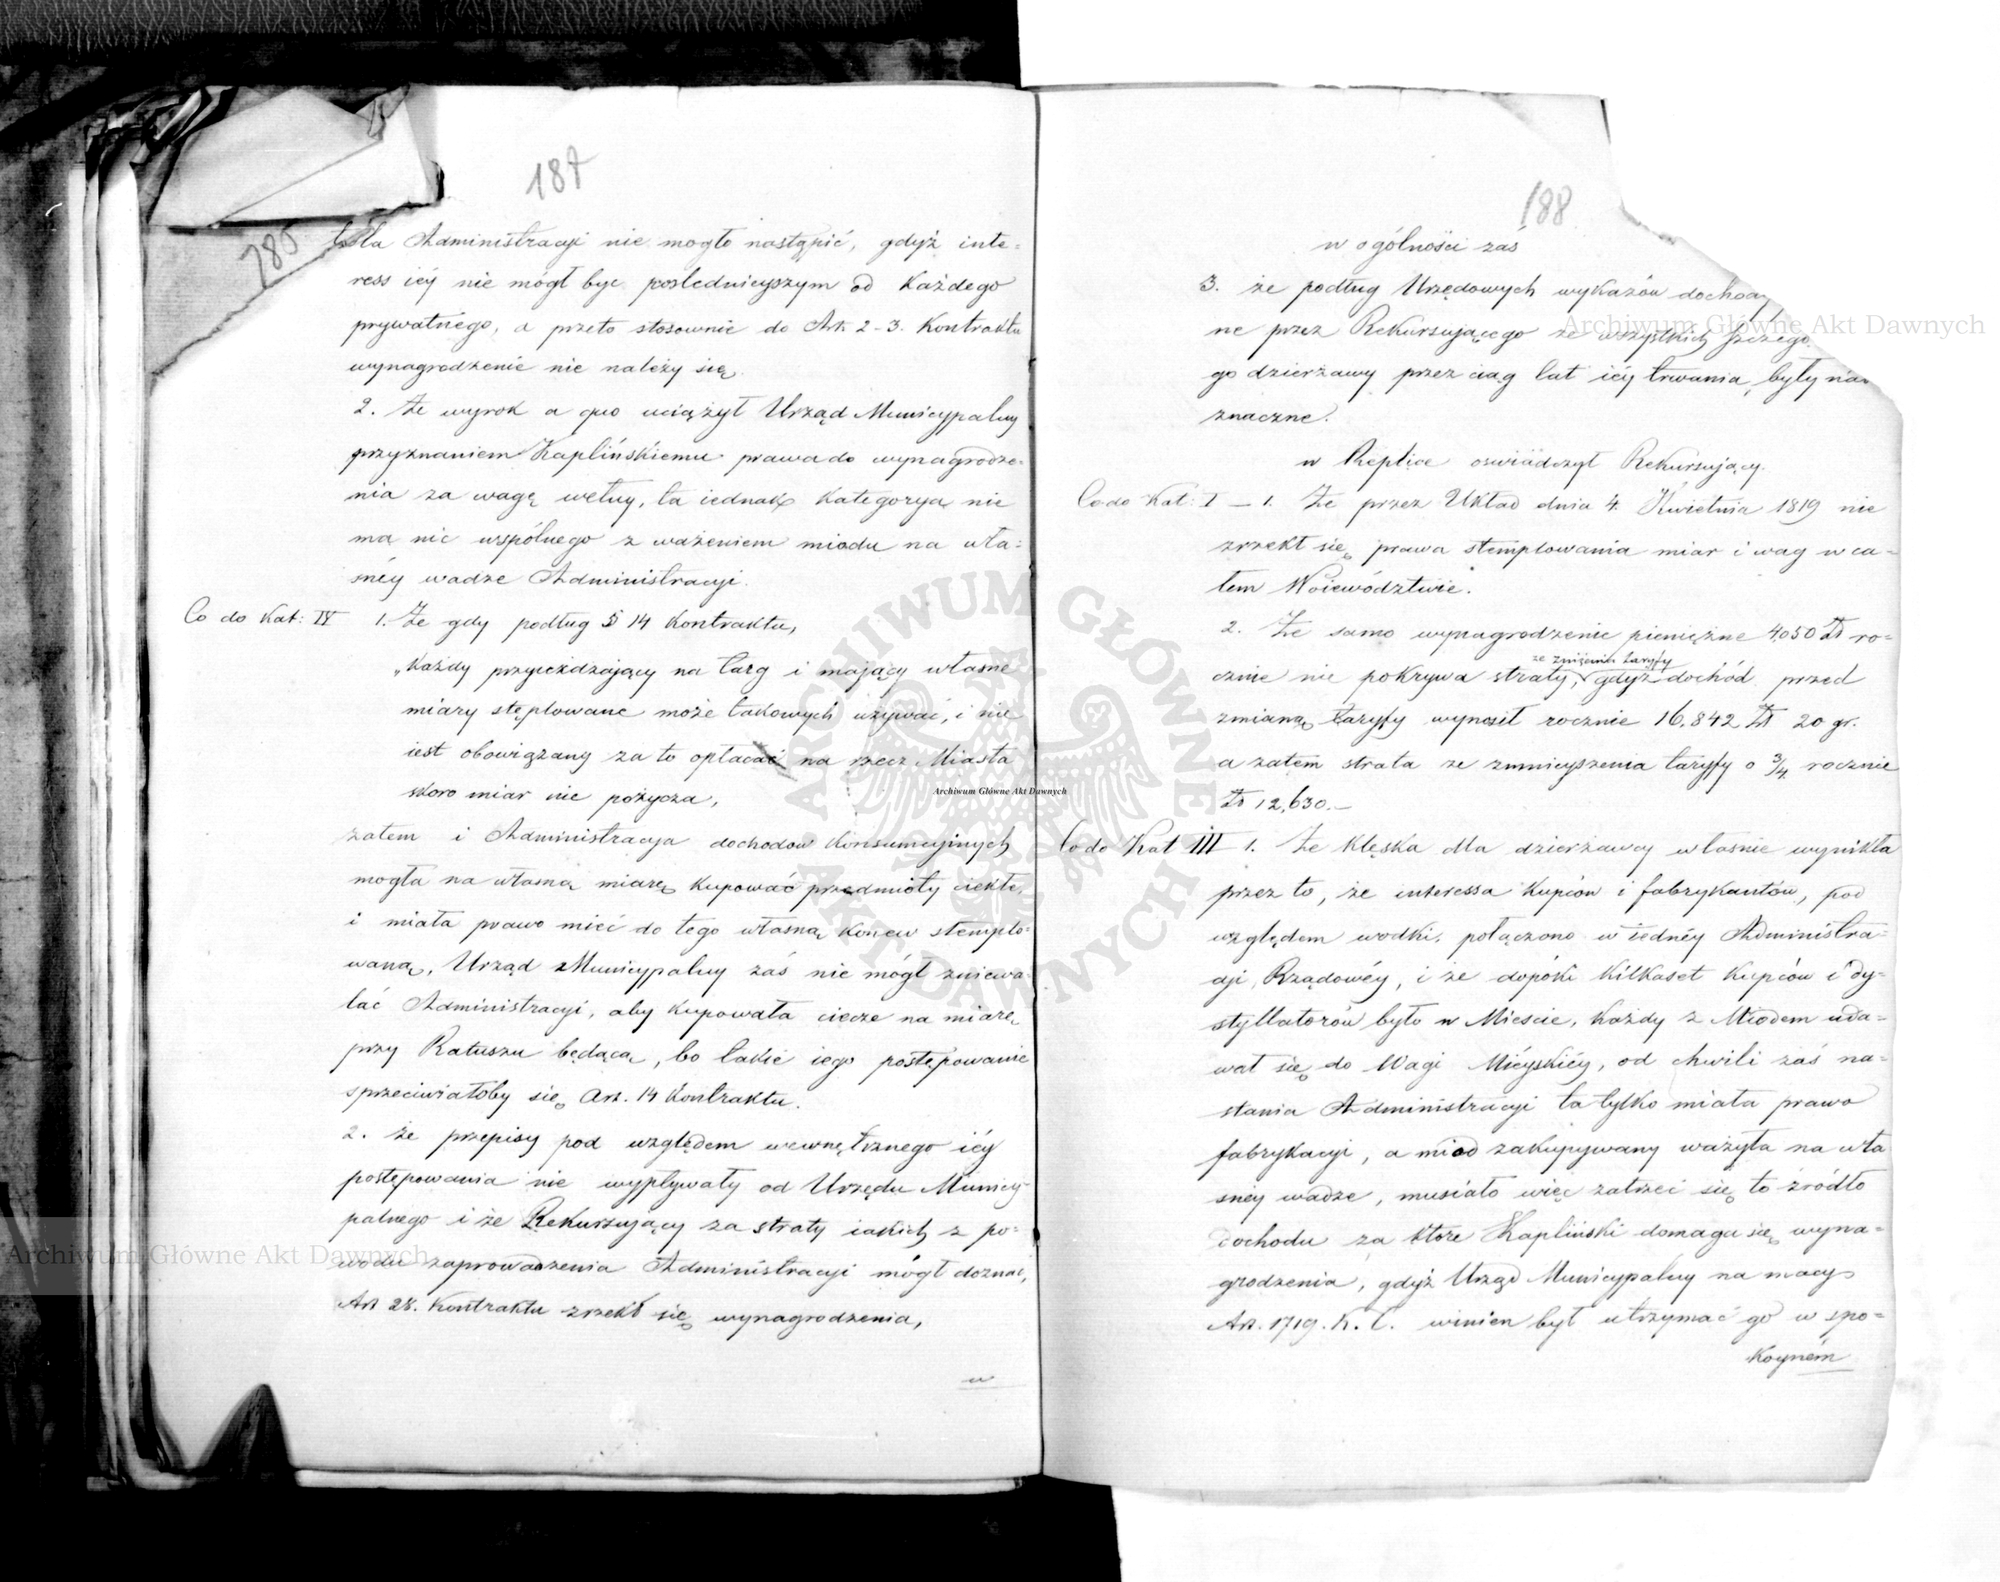 187
285
dla Administracyi nie mogło nastąpić, gdyż inte=
ress iéy nie mógł byc poslednieyszym od Każdego
prywatnego, a przeto stosownie do Art. 2-3. Kontraktu
wynagrodzenie nie należy się.
2. Że wyrok a quo uciążył Urząd Municypalny
przyznaniem Kaplińskiemu prawa do wynagrodze=
nia za wagę wełny, ta iednak Kategorya nie
ma nic wspólnego z ważeniem miodu na wła=
snéy wadze Administracyi.
Co do Kat: IV 1. Że gdy podług § 14 Kontraktu,
„Każdy przyieżdzaiący na targ i maiący własne
miary stęplowane może takowych używać, i nie
iest obowiązany za to opłacać na rzecz Miasta
skoro miar nie pożycza,
zatem i Administracya dochodow Konsumcyinych
mogła na własną miarę Kupować przedmioty ciekłe,
i miała prawo mieć do tego własną Konew stemplo=
waną, Urząd Municypalny zaś nie mógł zniewa=
lać Administracyi, aby Kupowała ciecze na miarę
przy Ratuszu będącą, bo takie iego postępowanie
sprzeciwiałoby się Art. 14 Kontraktu.
2. że przepisy pod względem wewnętrznego iéy
postępowania nie wypływały od Urzędu Municy=
palnego i że Rekursuiący za straty iakich z po=
wodu zaprowadzenia Administracyi mógł doznać,
Art 28. Kontraktu zrzekł się wynagrodzenia,
w
188
w ogólności zaś
3. że podług Urzędowych wykazów dochody
ne przez Rekursuiącego ze wszystkich szczegó
go dzierżawy przez ciąg lat iéy trwania, były
znaczne.
w Replice oswiadczył Rekursuiący.
Co do Kat: I — 1. Że przez Układ dnia 4. Kwietnia 1819 nie
zrzekł się prawa stemplowania miar i wag w ca=
łem Woiewództwie.
2. Że samo wynagrodzenie pieniężne 4,050 Zł ro=
ze zniżenia taryfy
cznie nie pokrywa straty, gdyż dochód przed
zmianą taryfy wynosił rocznie 16.842 Zł 20 gr.
a zatem strata ze zmnieyszenia taryfy o 3/4 rocznie
Zł 12,630.—
Co do Kat III 1. Że klęska dla dzierżawcy własnie wynikła
przez to, że interessa Kupców i fabrykantów, pod
względem wodki, połączono w iednéy Administra=
cyi Rządowéy, i że dopóki Kilkaset Kupców i dy=
styllatorów było w Miescie, Każdy z Miodem uda=
wał się do Wagi Mieyskiéy, od chwili zaś na=
stania Administracyi ta tylko miała prawo
fabrykacyi, a miod zakupywany ważyła na wła
snéy wadze, musiało więc zatrzeć się to źródło
dochodu za Które Kapliński domaga się wyna=
grodzenia, gdyż Urząd Municypalny na mocy
Art. 1719. K. C. winien był utrzymać go w spo=
koyném
Archiwum Główne Akt Dawnych
Archiwum Główne Akt Dawnych
Archiwum Główne Akt Dawnych
ARCHIWUM GŁÓWNE AKT DAWNYCH